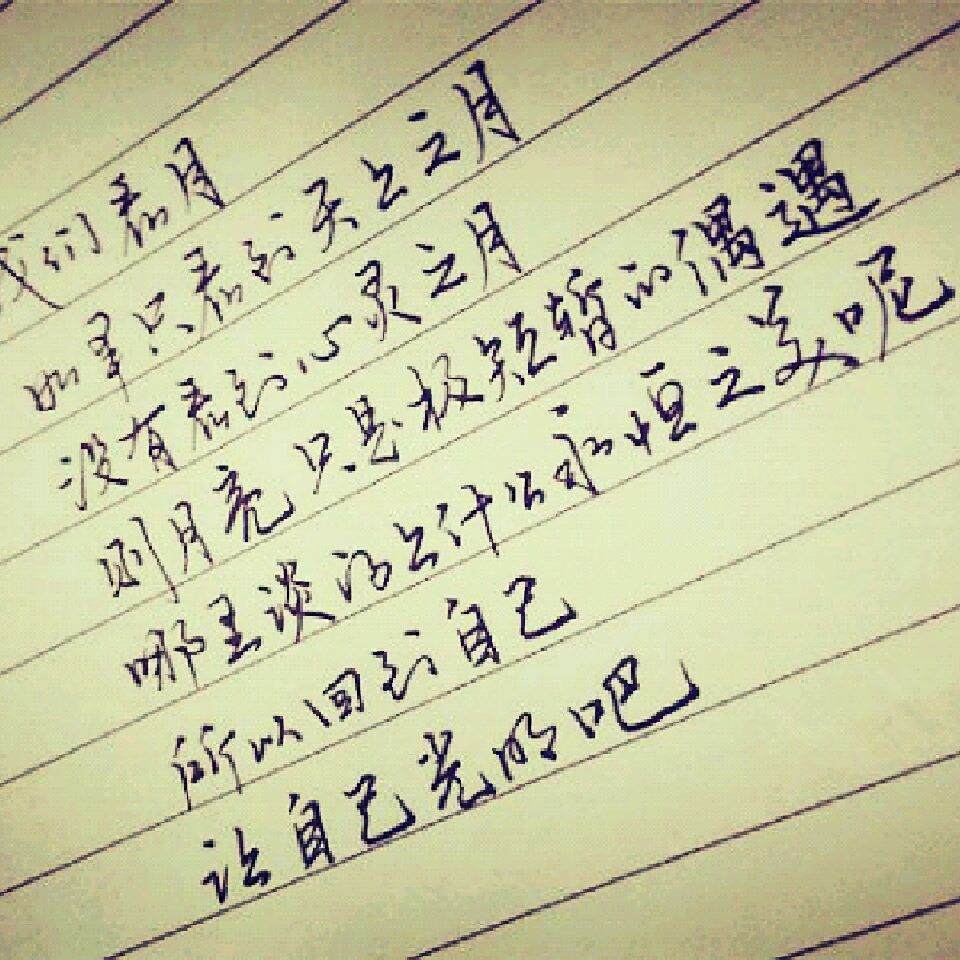 我们看月
如果只看到天上之月
没有看到心灵之月
则月亮只是极短暂的偶遇
哪里谈得上什么永恒之美呢
所以回到自己
让自己光明吧